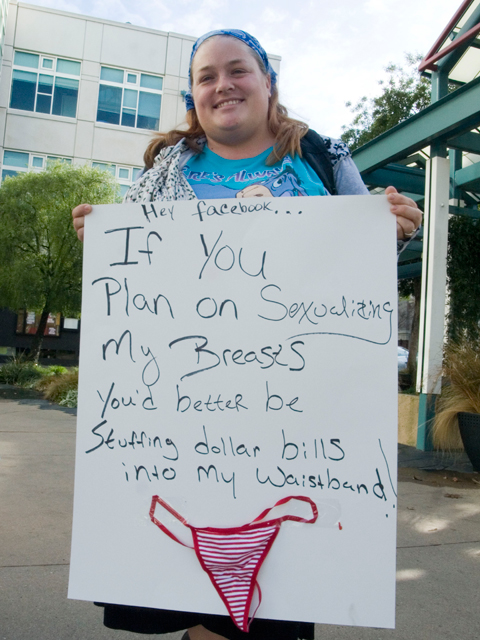 Hey facebook...
If You
Plan on Sexualizing
My Breasts
You'd better be
Stuffing dollar bills
into My Waistband!